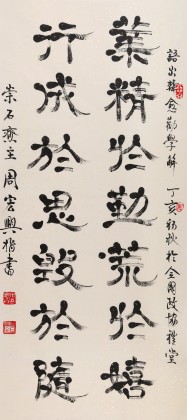 語出韓愈勸學解 丁亥初秋於全國政協禮堂
業精於勤荒於嬉
行成於思毀於隨
崇石齋主周宏興撰書